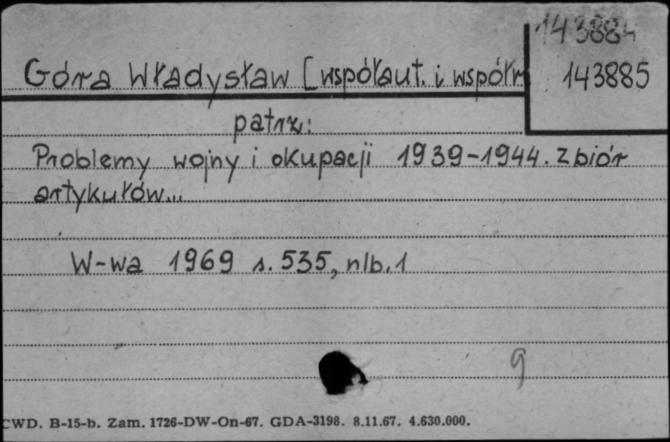 143884
Góra Władysław [współaut. i współr
143885
patrz:
Problemy wojny i okupacji 1939-1944. Zbiór
artykułów...
W-wa 1969 s. 535, nlb. 1
9
CWD. B-15-b. Zam. 1726-DW-On-67. GDA-3198. 8.11.67. 4.630.000.